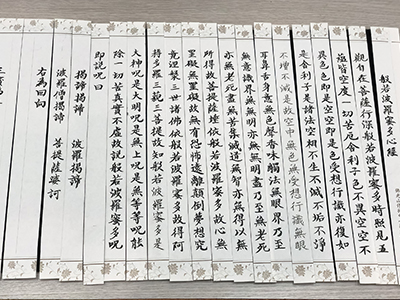 般若波羅蜜多心經
觀自在菩薩行深般若波羅蜜多時照見五
蘊皆空度一切苦厄舍利子色不異空空不
異色色即是空空即是色受想行識亦復如
是舍利子是諸法空相不生不滅不垢不淨
不增不減是故空中無色無受想行識無眼
耳鼻舌身意無色聲香味觸法無眼界乃至
無意識界無無明亦無無明盡乃至無老死
亦無老死盡無苦集滅道無智亦無得以無
所得故菩提薩埵依般若波羅蜜多故心無
罣礙無罣礙故無有恐怖遠離顛倒夢想究
竟涅槃三世諸佛依般若波羅蜜多故得阿
耨多羅三藐三菩提故知般若波羅蜜多是
大神呪是大明呪是無上呪是無等等呪能
除一切苦真實不虛故說般若波羅蜜多呪
即說呪曰
揭諦揭諦 波羅揭諦
波羅僧揭諦 菩提薩婆訶
右為回向